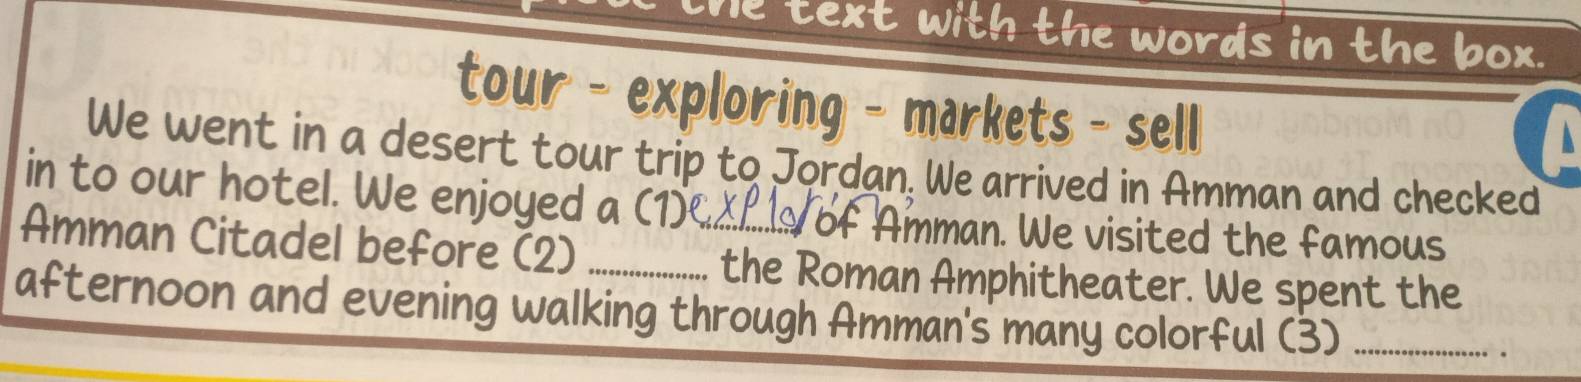 the text with the words in the box.
tour - exploring - markets - sell
A
We went in a desert tour trip to Jordan. We arrived in Amman and checked
in to our hotel. We enjoyed a (1) explorin of Amman. We visited the famous
Amman Citadel before (2) .................. the Roman Amphitheater. We spent the
afternoon and evening walking through Amman's many colorful (3) .................. .